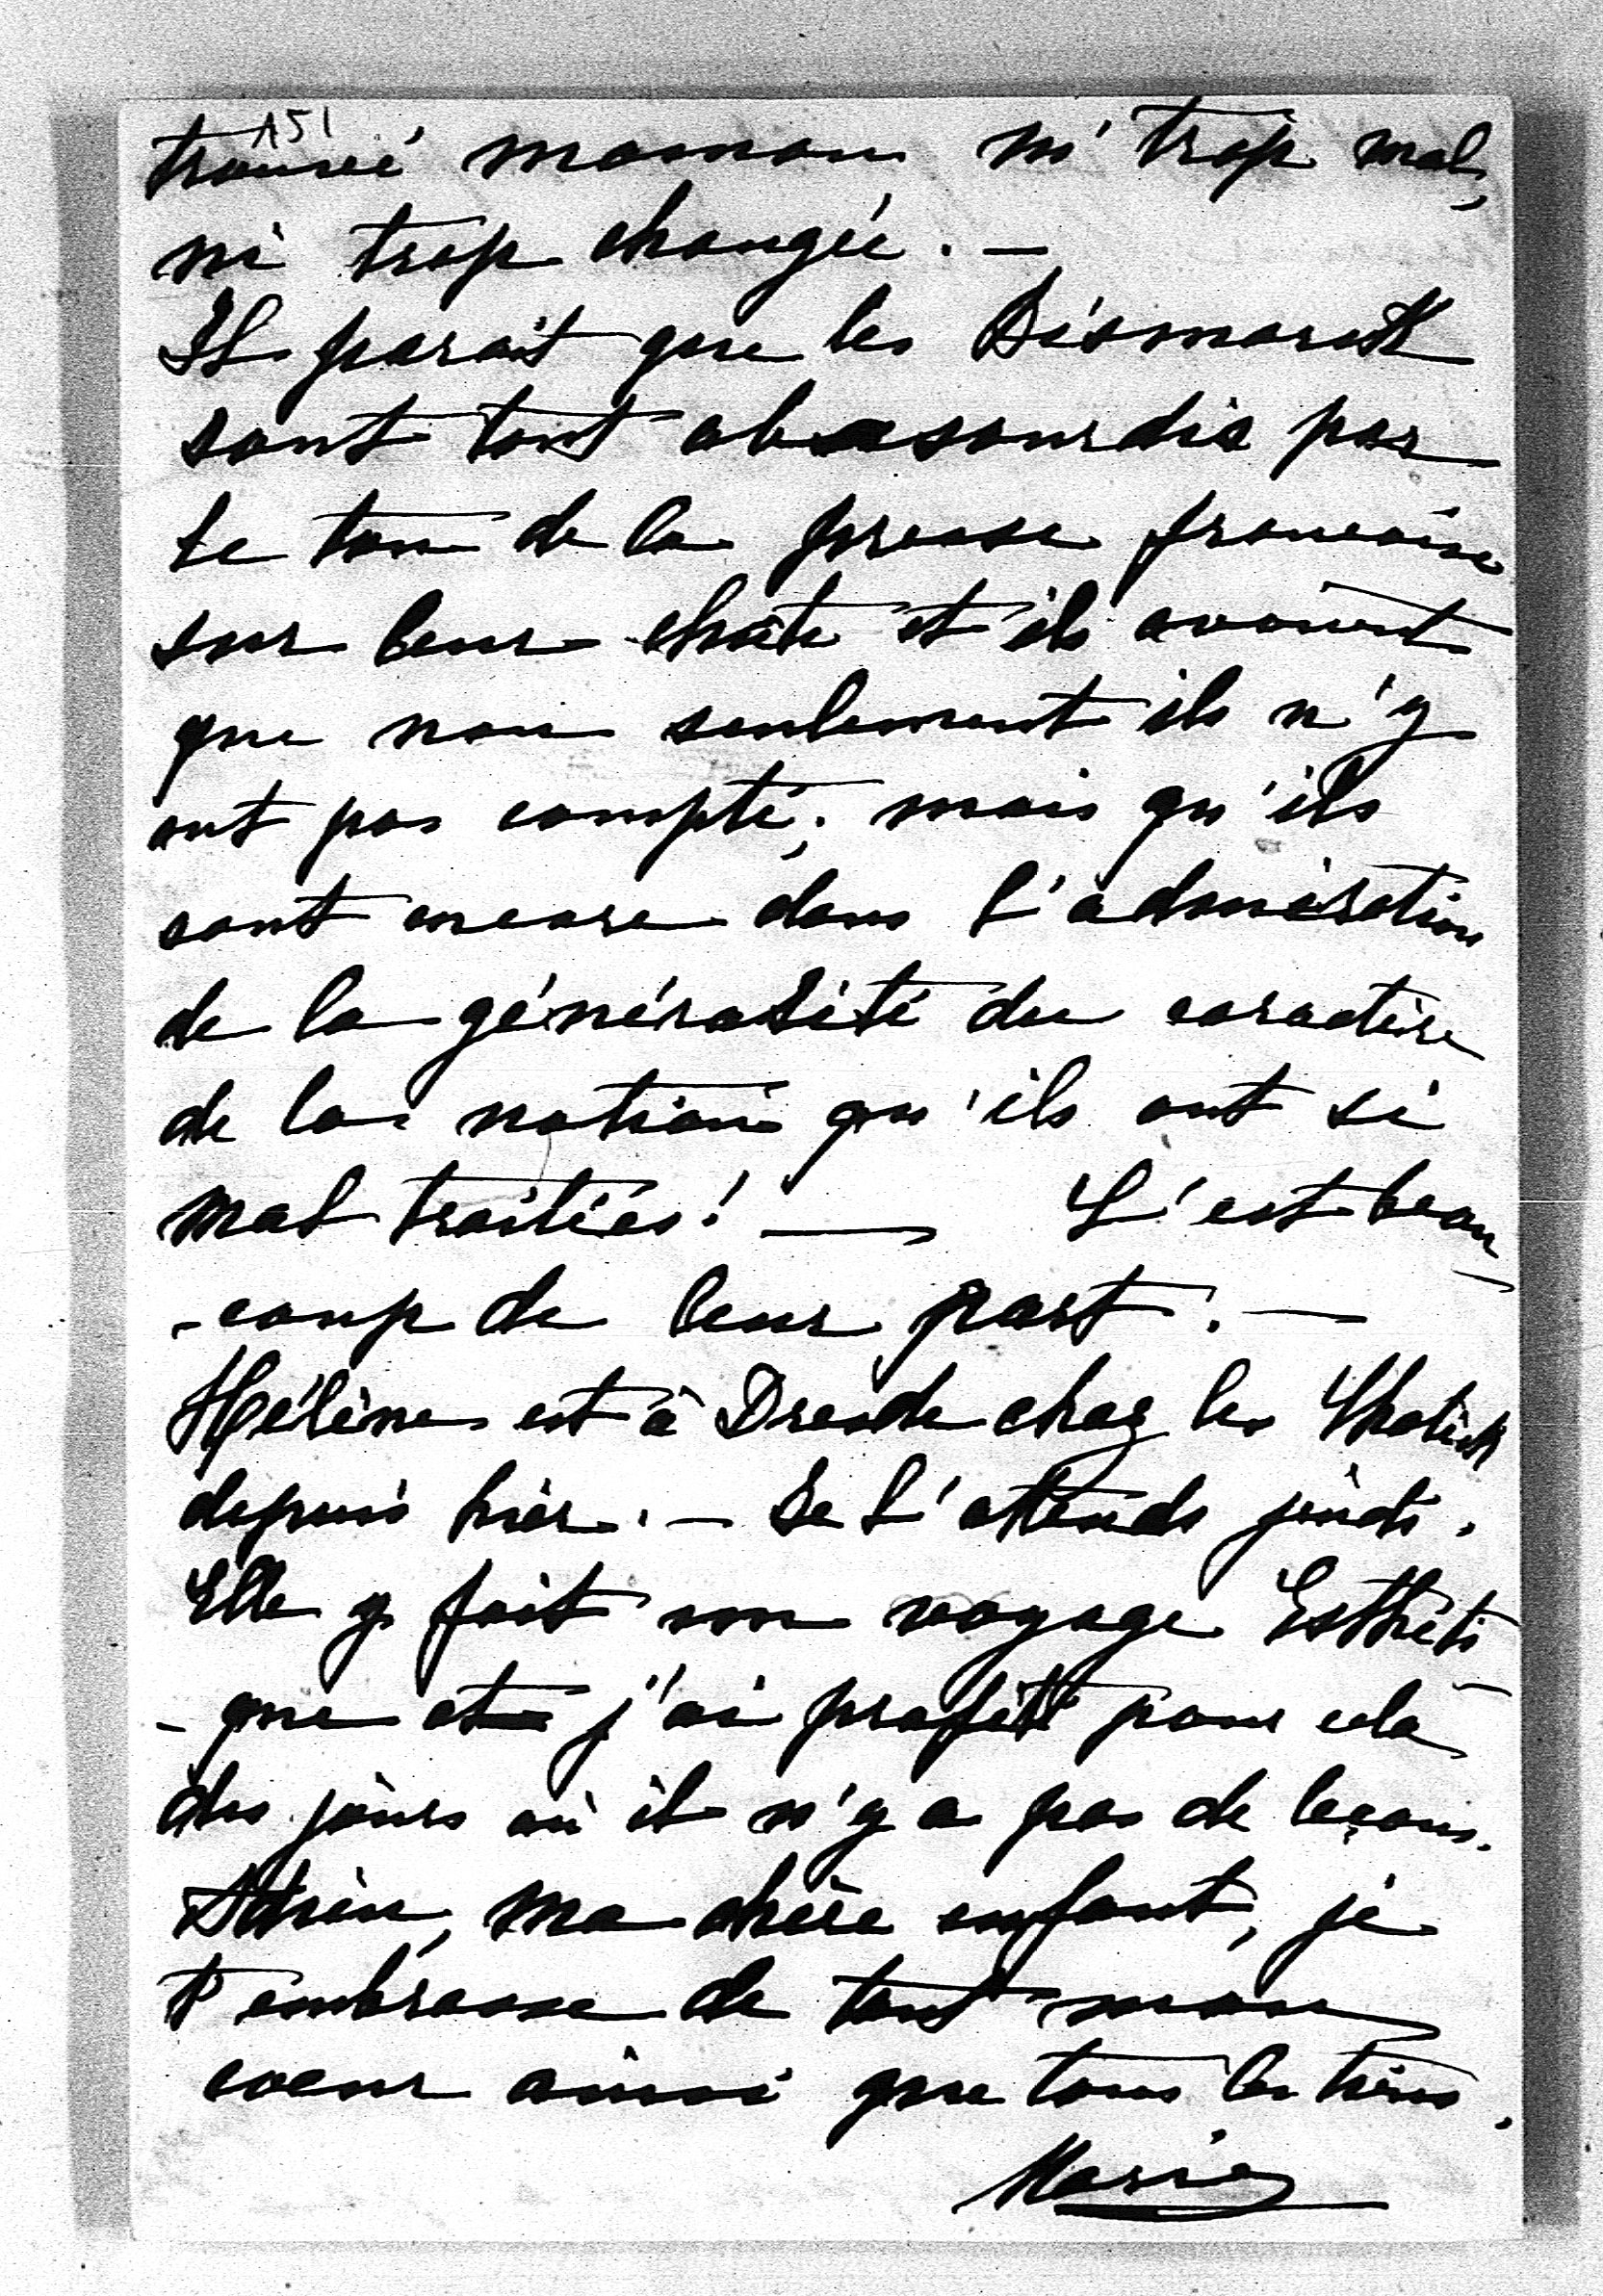 151
trouvé maman ni trop mal,
ni trop changée. —
Il parait que les Bismarck
sont tout abasourdis par
le ton de la presse française
sur leur chûte et ils avouent
que non seulement ils n'y
ont pas compté, mais qu'ils
sont encore dans l'admiration
de la générosité du caractère
de la nation qu'ils ont si
mal traitées! — C'est beau
-coup de leur part. —
Hélène est à Dresde chez les
depuis hier. — Je l'attends jeudi.
Elle y fait son voyage Esthéti
-que et j'ai profité pour cela
des jours où il n'y a pas de leçons.
Adieu, ma chère enfant, je
t'embrasse de tout mon
coeur ainsi que tous les tiens.
Marie